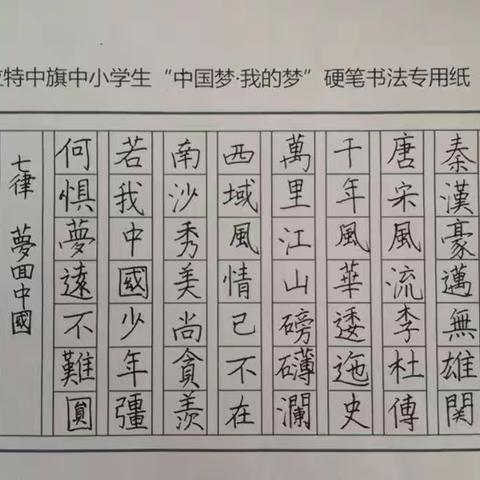 特中旗中小学生“中国梦·我的梦”硬笔书法专用纸
秦漢豪邁無雄関
唐宋風流李杜傳
千年風華逶迤史
萬里江山磅礴瀾
西域風情已不在
南沙秀美尚貪羨
若我中國少年彊
何惧夢遠不難圓
七律 夢回中國